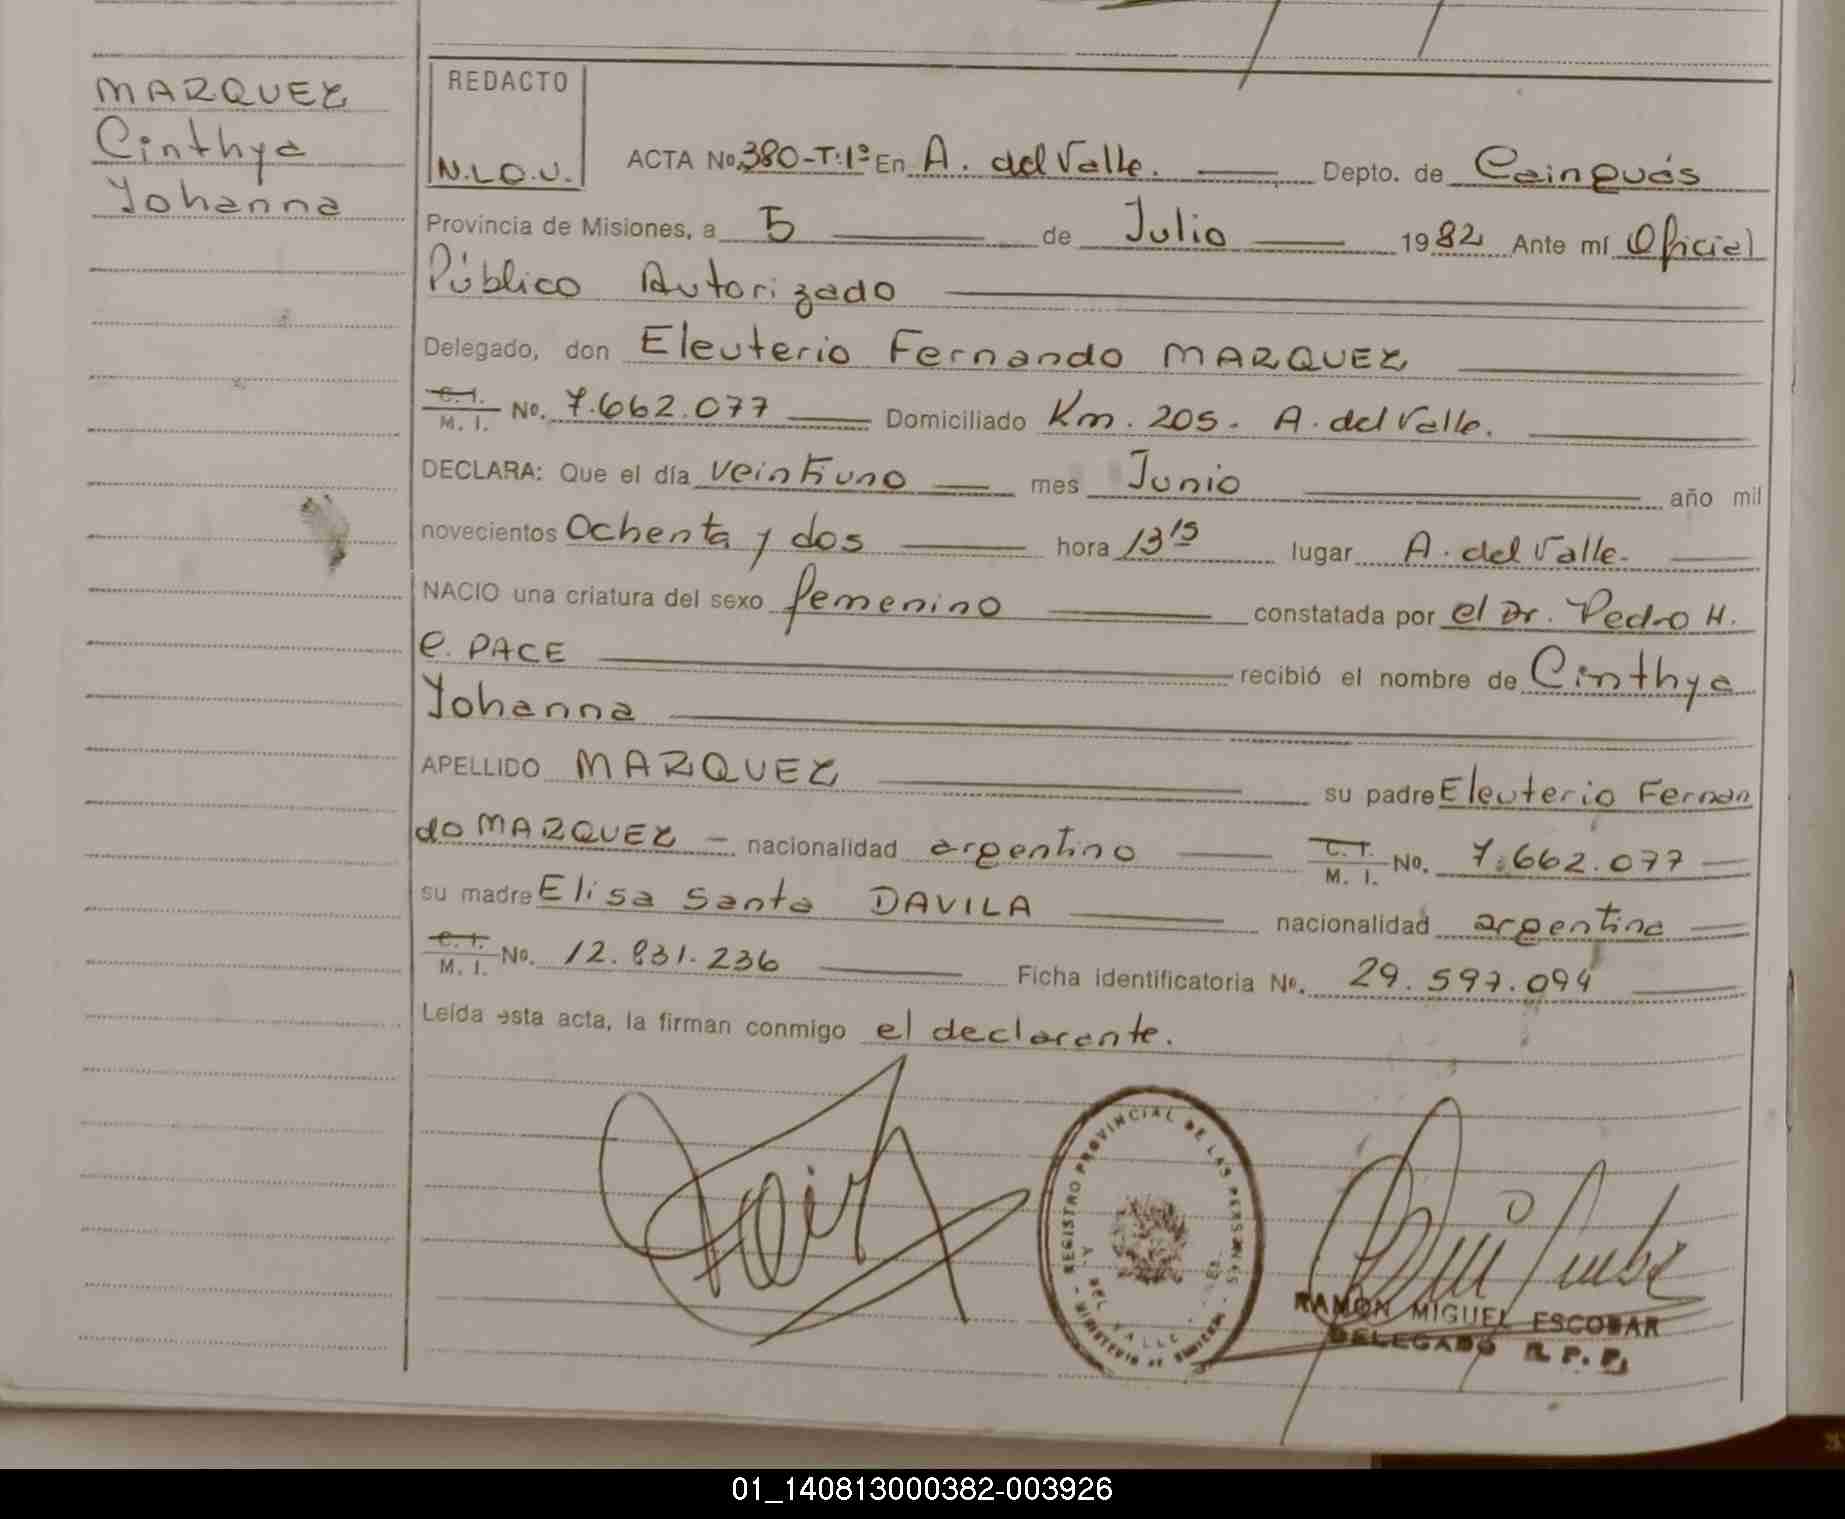 MARQUEZ
Cinthya
Yohanna
REDACTO
N.L.O.U.
ACTA No. 380-T:1º En A. del Valle. Depto. de Cainguás
Provincia de Misiones, a 5 de Julio 1982 Ante mí Oficial
Público Autorizado
Delegado, don Eleuterio Fernando MARQUEZ
C.I. M. I. Nº. 7.662.077 Domiciliado Km. 205. A. del Valle.
DECLARA: Que el día veintiuno mes Junio año mil
novecientos Ochenta y dos hora 13 15 lugar A. del Valle.
NACIO una criatura del sexo femenino constatada por el Dr. Pedro H.
e. PACE recibió el nombre de Cinthya
Yohanna
APELLIDO MARQUEZ su padre Eleuterio Fernan
do MARQUEZ nacionalidad argentino C.I. M. I. Nº. 7.662.077
su madre Elisa Santa DAVILA nacionalidad argentina
C.I. M. I. Nº. 12.831.236 Ficha identificatoria Nº. 29.597.094
Leída esta acta, la firman conmigo el declarante.
REGISTRO PROVINCIAL DE LAS PERSONAS
MINISTERIO DE
DEL VALLE
RAMON MIGUEL ESCOBAR
DELEGADO R. P. P.
01_140813000382-003926